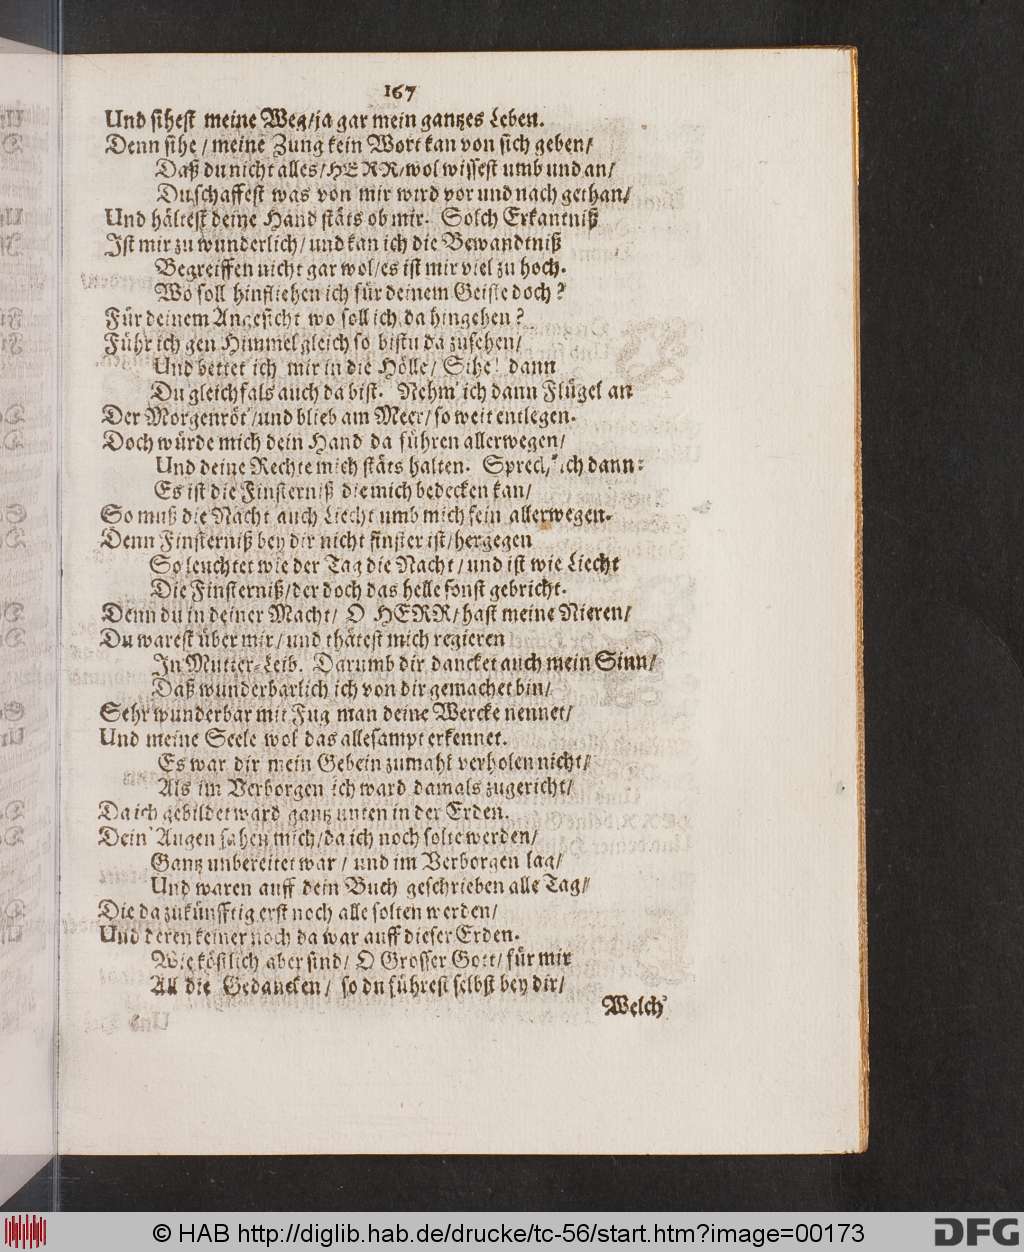 167
Und sihest meine Weg/ja gar mein gantzes Leben.
Denn sihe / meine Zung kein Wort kan von sich geben/
Daß du nicht alles/HERR/wol wissest umb und an/
Du schaffest was von mir wird vor und nach gethan/
Und hältest deine Hand stäts ob mir. Solch Erkantniß
Ist mir zu wunderlich/ und kan ich die Bewandtniß
Begreiffen nicht gar wol/es ist mir viel zu hoch.
Wo soll hinfliehen ich für deinem Geiste doch?
Für deinem Angesicht wo soll ich da hingehen?
Führ ich gen Himmel gleich so bistu da zusehen/
Und bettet ich mir in die Hölle/ Sihe! dann
Du gleichfals auch da bist. Nehm' ich dann Flügel an
Der Morgenröt'/und blieb am Meer/ so weit entlegen.
Doch würde mich dein Hand da führen allerwegen/
Und deine Rechte mich stäts halten. Sprech' ich dann:
Es ist die Finsterniß die mich bedecken kan/
So muß die Nacht auch Liecht umb mich sein allerwegen.
Denn Finsterniß bey dir nicht finster ist/hergegen
So leuchtet wie der Tag die Nacht / und ist wie Liecht
Die Finsterniß/der doch das helle sonst gebricht.
Denn du in deiner Macht/ O HERR/ hast meine Nieren/
Du warest über mir/ und thätest mich regieren
In Mutter-Leib. Darumb dir dancket auch mein Sinn/
Daß wunderbarlich ich von dir gemachet bin/
Sehr wunderbar mit Fug man deine Wercke nennet/
Und meine Seele wol das allesampt erkennet.
Es war dir mein Gebein zumahl verholen nicht/
Als im Verborgen ich ward damals zugericht/
Da ich gebildet ward gantz unten in der Erden.
Dein' Augen sahen mich/da ich noch solte werden/
Gantz unbereitet war / und im Verborgen lag/
Und waren auff dein Buch geschrieben alle Tag/
Die da zukünfftig erst noch alle solten werden/
Und deren keiner noch da war auff dieser Erden.
Wie köstlich aber sind/ O Grosser Gott/ für mir
All die Gedancken/ so du führest selbst bey dir/
Welch'
© HAB http://diglib.hab.de/drucke/tc-56/start.htm?image=00173
DFG